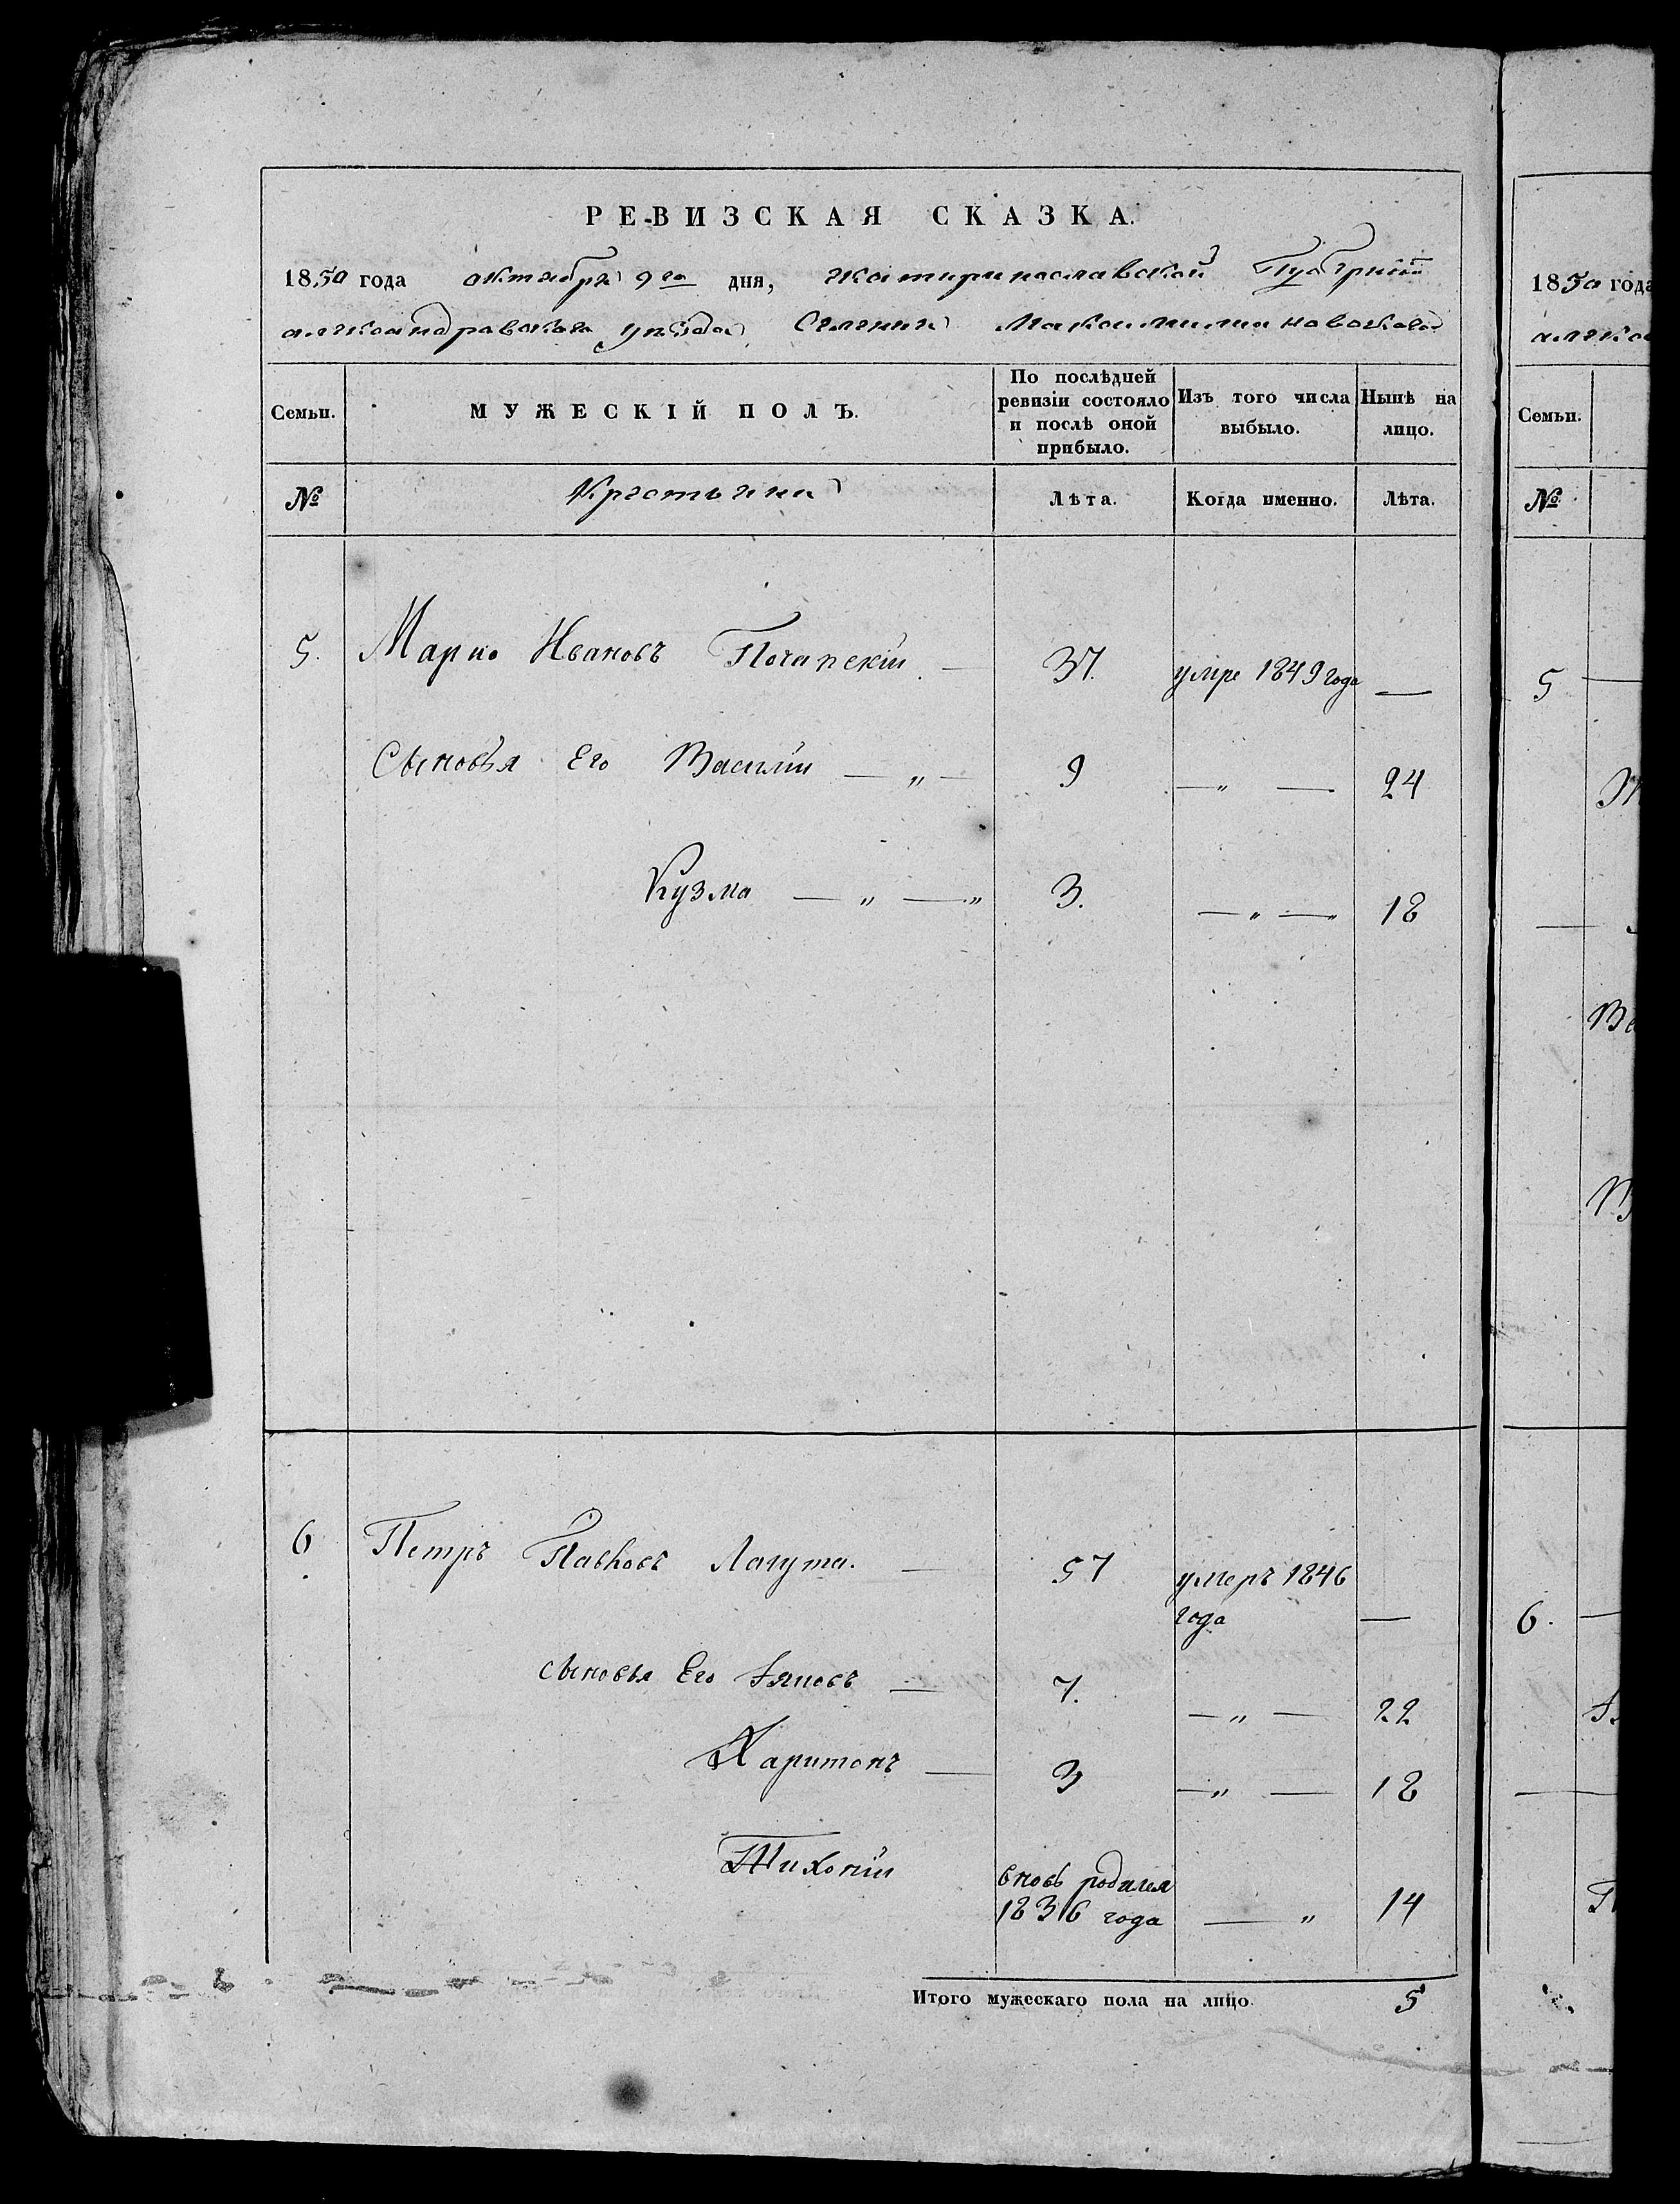 РЕВИЗСКАЯ СКАЗКА.
1850 года октября 9го дня, екатеринославской Губернии
александравскаго уезда Селения Максимилиановскаго
Семьи. МУЖЕСКІЙ ПОЛЪ. По послѣдней ревизіи состояло и послѣ оной прибыло. Изъ того числа выбыло. Нынѣ на лицо.
№ Крестьяни Лѣта. Когда именно. Лѣта.
5. Марко Ивановъ 37. умре 1849 года —
Сыновья Его Василій — „ — 9 — „ — 24
Кузма — „ — „ 3. — „ — „ 18
6 Петръ Павловъ Лагута. — 57 умеръ 1846
года —
сыновья Его — 7. — „ — 22
Харитонъ — 3 — „ — 18
Тихоній вновь родился
1836 года — „ 14
Итого мужескаго пола на лицо. 5
1850 года
алекса
Семьи.
№
5 —
Ва
6. —